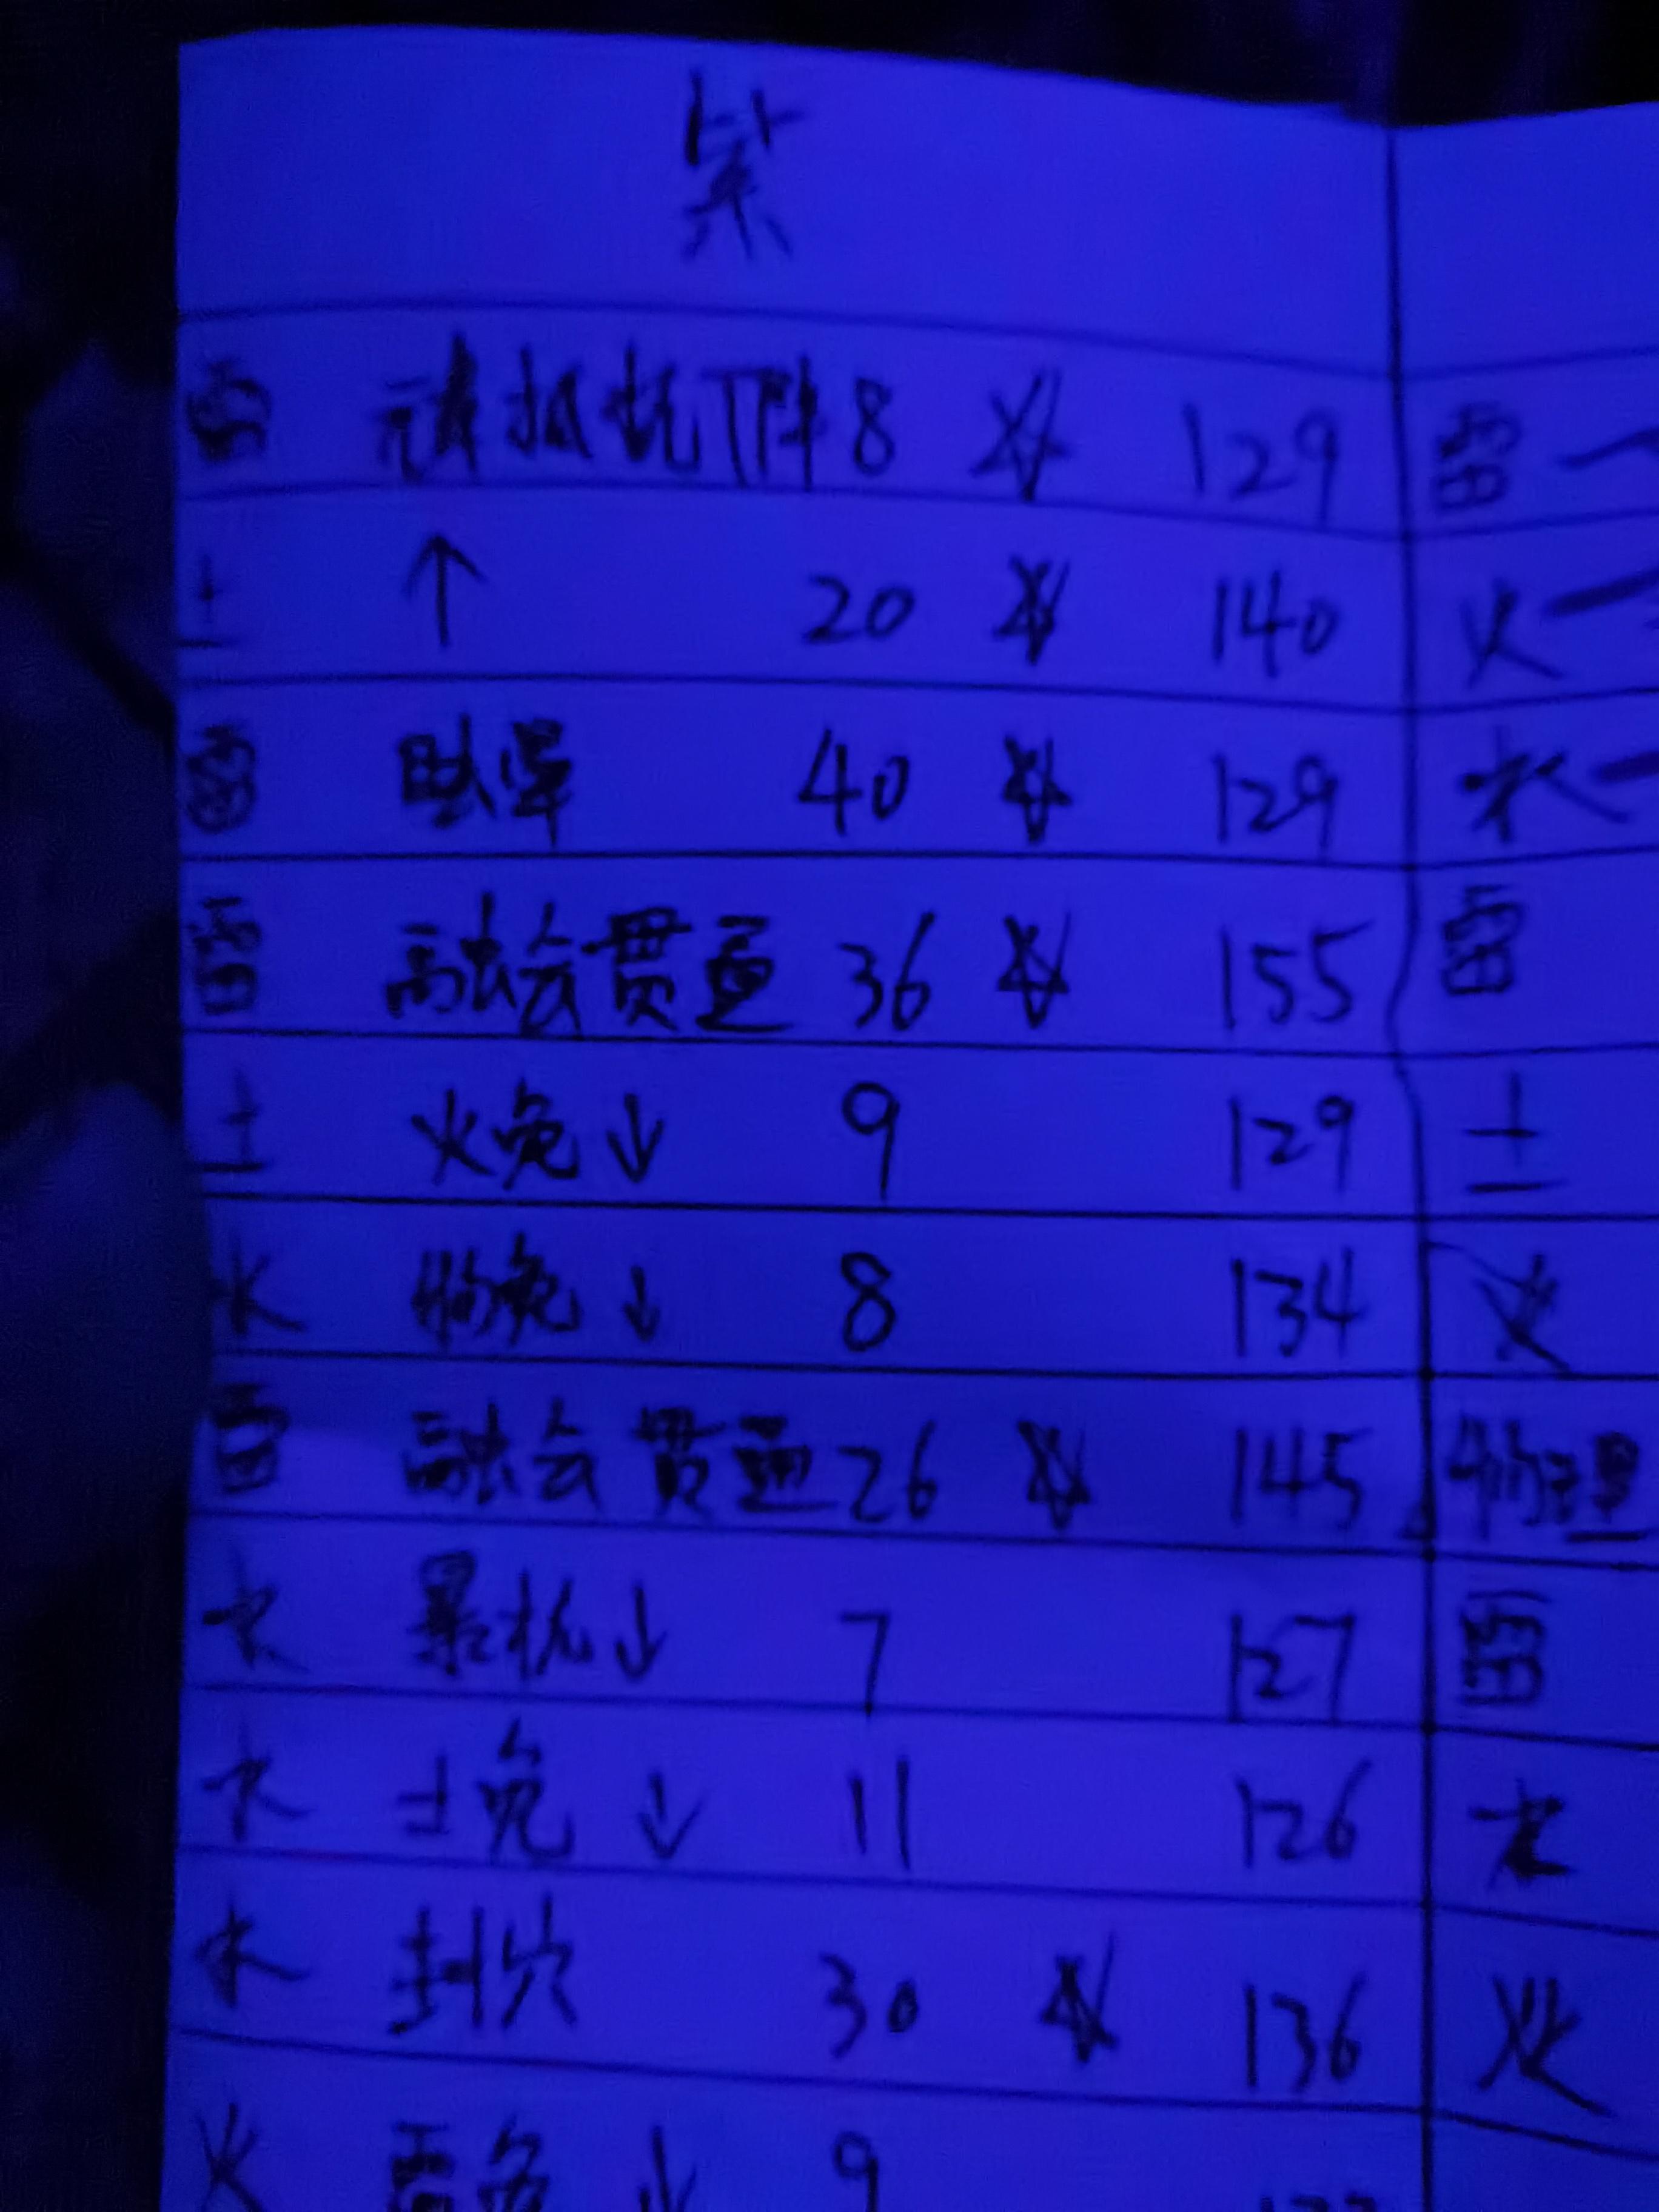 紫
雷 8 ☆ 129 雷 一
土 ↑ 20 ☆ 140 火 一
雷 眩晕 40 ☆ 129 水 一
雷 融会贯通 36 ☆ 155 雷
土 火免↓ 9 129 土
水 物免↓ 8 134 火
雷 融会贯通 26 ☆ 145 物理
水 暴抗↓ 7 127 雷
水 土免↓ 11 126 水
水 封穴 30 ☆ 136 火
火 雷免↓ 9